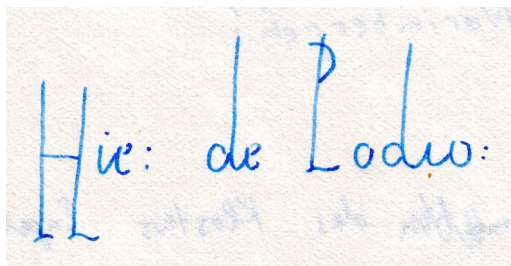 Hie: de Podio: